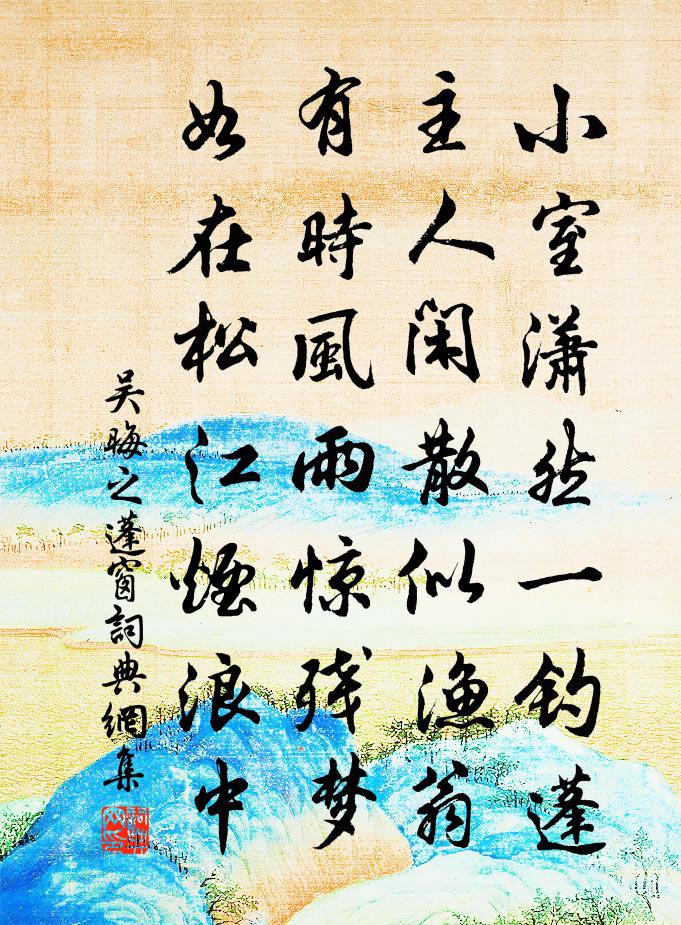 小室瀟然一钓蓬
主人闲散似渔翁
有時風雨惊残梦
如在松江煙浪中
吴晦之蓬窗詞典網集